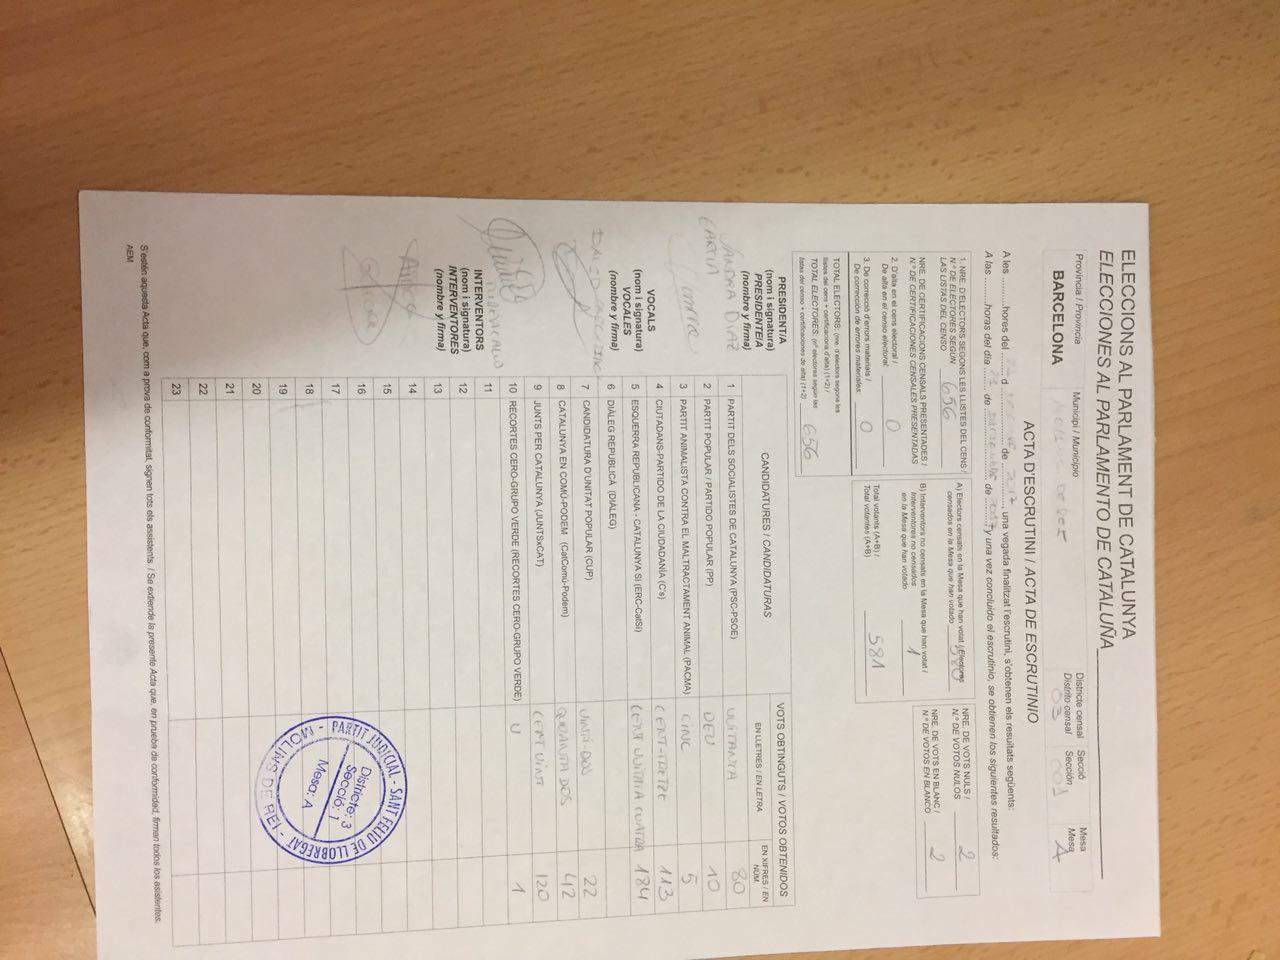 ELECCIONS AL PARLAMENT DE CATALUNYA
ELECCIONES AL PARLAMENTO DE CATALUÑA
Província / Provincia
BARCELONA
Municipi / Municipio
Districte censal
Distrito censal
03
Secció
Sección
001
Mesa
Mesa
A
ACTA D'ESCRUTINI / ACTA DE ESCRUTINIO
A les ........... hores del ........ d ........ de ........, una vegada finalitzat l'escrutini, s'obtenen els resultats següents:
A las ........... horas del día ........ de ........ de ........, y una vez concluido el escrutinio, se obtienen los siguientes resultados:
1. NRE. D'ELECTORS SEGONS LES LLISTES DEL CENS /
N.º DE ELECTORES SEGÚN
LAS LISTAS DEL CENSO
656
NRE. DE CERTIFICACIONS CENSALS PRESENTADES /
N.º DE CERTIFICACIONES CENSALES PRESENTADAS
2. D'alta en el cens electoral /
De alta en el censo electoral:
0
3. De correcció d'errors materials /
De corrección de errores materiales:
0
TOTAL ELECTORS: (nre. d'electors segons les
llistes del cens + certificacions d'alta) (1+2) /
TOTAL ELECTORES: (nº electores según las
listas del censo + certificaciones de alta) (1+2)
656
A) Electors censats en la Mesa que han votat / Electores
censados en la Mesa que han votado
580
B) Interventors no censats en la Mesa que han votat /
Interventores no censados
en la Mesa que han votado
1
Total votants (A+B) /
Total votantes (A+B)
581
NRE. DE VOTS NULS /
N.º DE VOTOS NULOS
2
NRE. DE VOTS EN BLANC /
N.º DE VOTOS EN BLANCO
2
CANDIDATURES / CANDIDATURAS
VOTS OBTINGUTS / VOTOS OBTENIDOS
EN LLETRES / EN LETRA
EN XIFRES / EN NÚM.
1 PARTIT DELS SOCIALISTES DE CATALUNYA (PSC-PSOE) VUITANTA 80
2 PARTIT POPULAR / PARTIDO POPULAR (PP) DEU 10
3 PARTIT ANIMALISTA CONTRA EL MALTRACTAMENT ANIMAL (PACMA) CINC 5
4 CIUTADANS-PARTIDO DE LA CIUDADANÍA (C's) CENT-TRETZE 113
5 ESQUERRA REPUBLICANA - CATALUNYA SÍ (ERC-CatSí) CENT VUITANTA QUATRE 184
6 DIÀLEG REPUBLICÀ (DIÀLEG)
7 CANDIDATURA D'UNITAT POPULAR (CUP) VINT-DOS 22
8 CATALUNYA EN COMÚ-PODEM (CatComú-Podem) QUARANTA DOS 42
9 JUNTS PER CATALUNYA (JUNTSxCAT) CENT VINT 120
10 RECORTES CERO-GRUPO VERDE (RECORTES CERO-GRUPO VERDE) U 1
11
12
13
14
15
16
17
18
19
20
21
22
23
PRESIDENT/A
(nom i signatura)
PRESIDENTE/A
(nombre y firma)
VOCALS
(nom i signatura)
VOCALES
(nombre y firma)
INTERVENTORS
(nom i signatura)
INTERVENTORES
(nombre y firma)
PARTIT JUDICIAL - SANT FELIU DE LLOBREGAT - MOLINS DE REI -
Districte: 3
Secció: 1
Mesa: A
S'estén aquesta Acta que, com a prova de conformitat, signen tots els assistents. / Se extiende la presente Acta que, en prueba de conformidad, firman todos los asistentes.
AEM